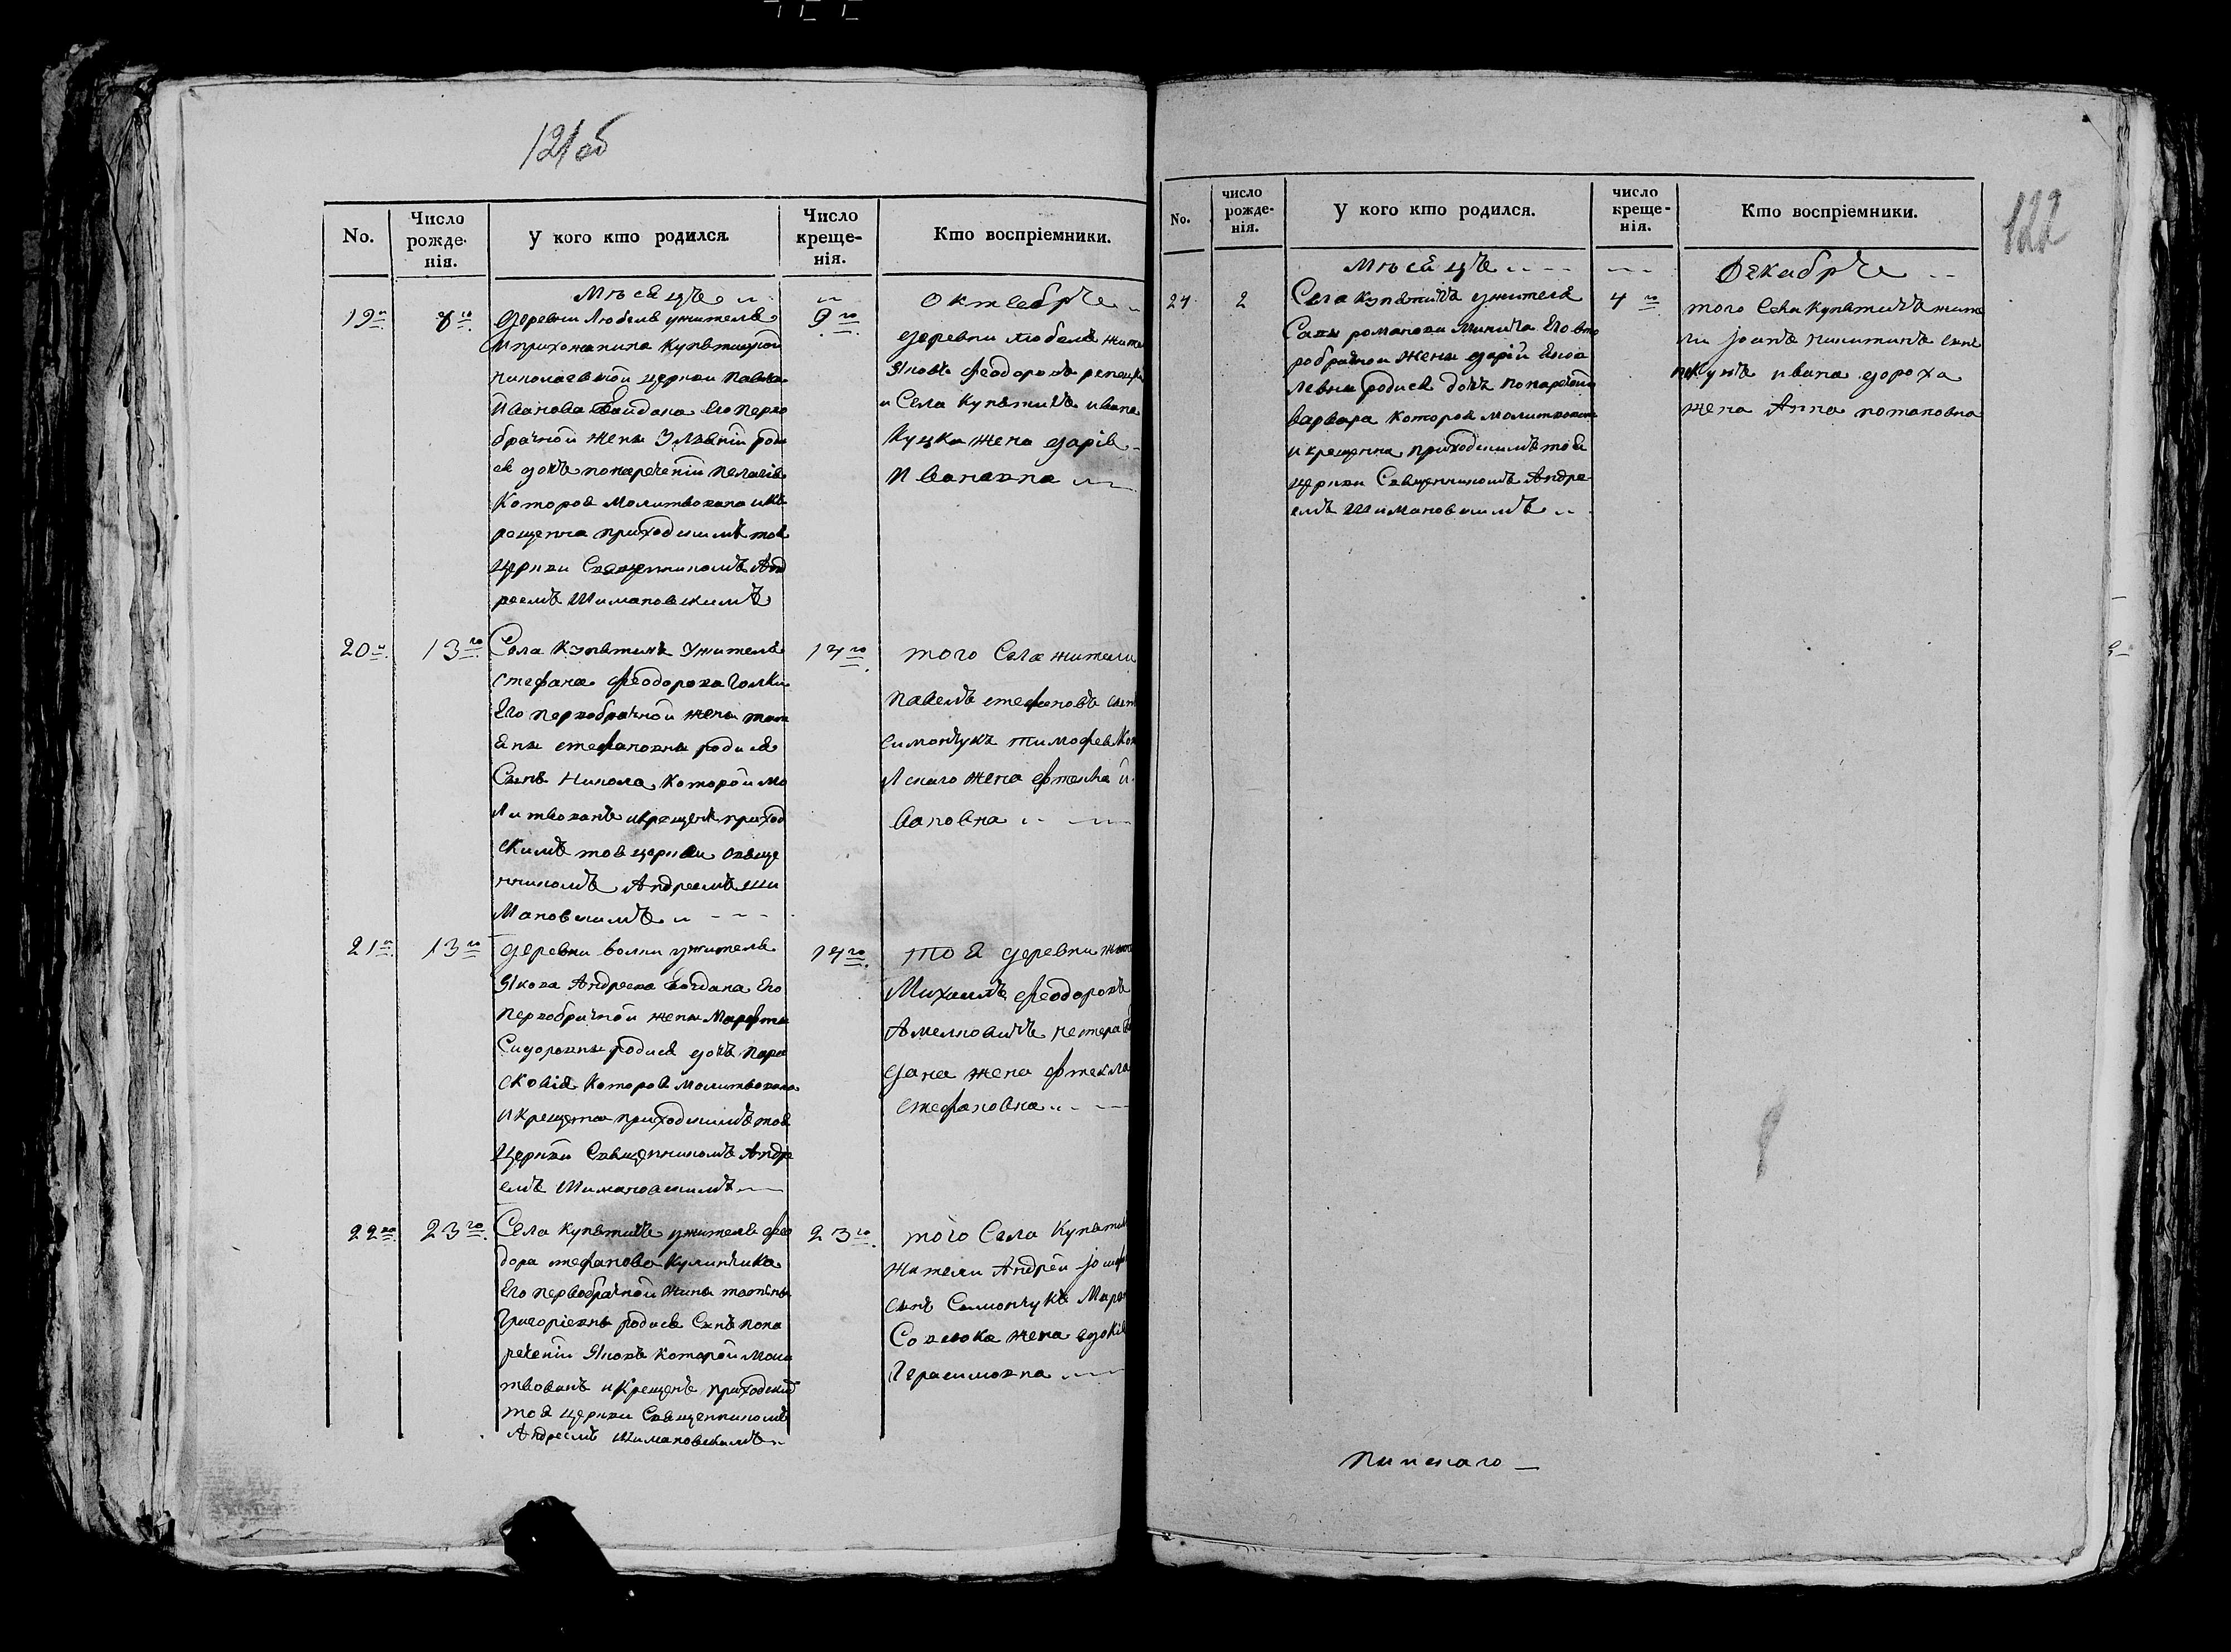 121об
No.
Число рожде-нія.
У кого кто родился.
Число креще-нія.
Кто воспріемники.
Мѣсяцъ
Октябрь
19
8го
9го
деревни Любель ужителя
Иприхожанина Купятицкой
николаевской церкви Павла
Иванова Байдана Его перво
брачной жены Улянiи роди
ся дочь понареченiи пелагiя
Которая Молитвована ик
рещенна приходскимъ тоя
церкви Священникомъ Анд
реемъ Шимановскимъ
деревни любель жите
Яковъ феодоровъ
и Села Купятичъ ивана
Куцка жена дарiя
Ивановна
20
13го
14го
Села Купятичъ Ужителя
стефана феодорова Голки
Его первобрачной жены тат
яны стефановны родися
Сынъ Никола Которой мо
литвованъ икрещенъ приход
скимъ тоя церкви свяще
нникомъ Андреемъ Ши
Мановскимъ
того Села жители
павелъ стефановъ сынъ
симончукъ тимофея
жена фтекла и
вановна
21
13го
14го
деревни волки ужителя
Якова Андреева Богдана Его
первобрачной жены Марфты
Сидоровны родися дочь пара
сковiя Которая Молитвована
икрещенна приходскимъ тоя
церкви Священникомъ Андре
емъ Шимановскимъ
тоя деревни жите
Михаилъ феодоровъ
нестера бог
дана жена фтекла
стефановна
22го
23го
23го
Села Купятичъ ужителя фео
дора стефанова Кулинчика
Его первобрачной жины татяны
Григорiевны родися Сынъ пона
реченiи Яковъ Которой Моли
твованъ икрещенъ приходский
тоя церкви Священникомъ
Андреемъ Шимановскимъ
того Села Купятич
жители Андрей
сынъ Самончукъ
жена едокiя
Герасимовна
122
No.
число рожде-нія.
У кого кто родился.
число креще-нія.
Кто воспріемники.
Мѣсяцъ
Декабрь
24
2
4го
Села Купятичъ ужителя
Савы романова Минича Его вто
робрачной жены дарiи
левны родися дочь понаречени
варвара Которая молитвована
и крещенна приходскимъ тоя
церкви Священникомъ Андре
емъ Шимановскимъ
того Села Купятичъ жите
ли Iоанъ никитинъ сынъ
ивана дороха
жена Анна потаповна
пинскаго